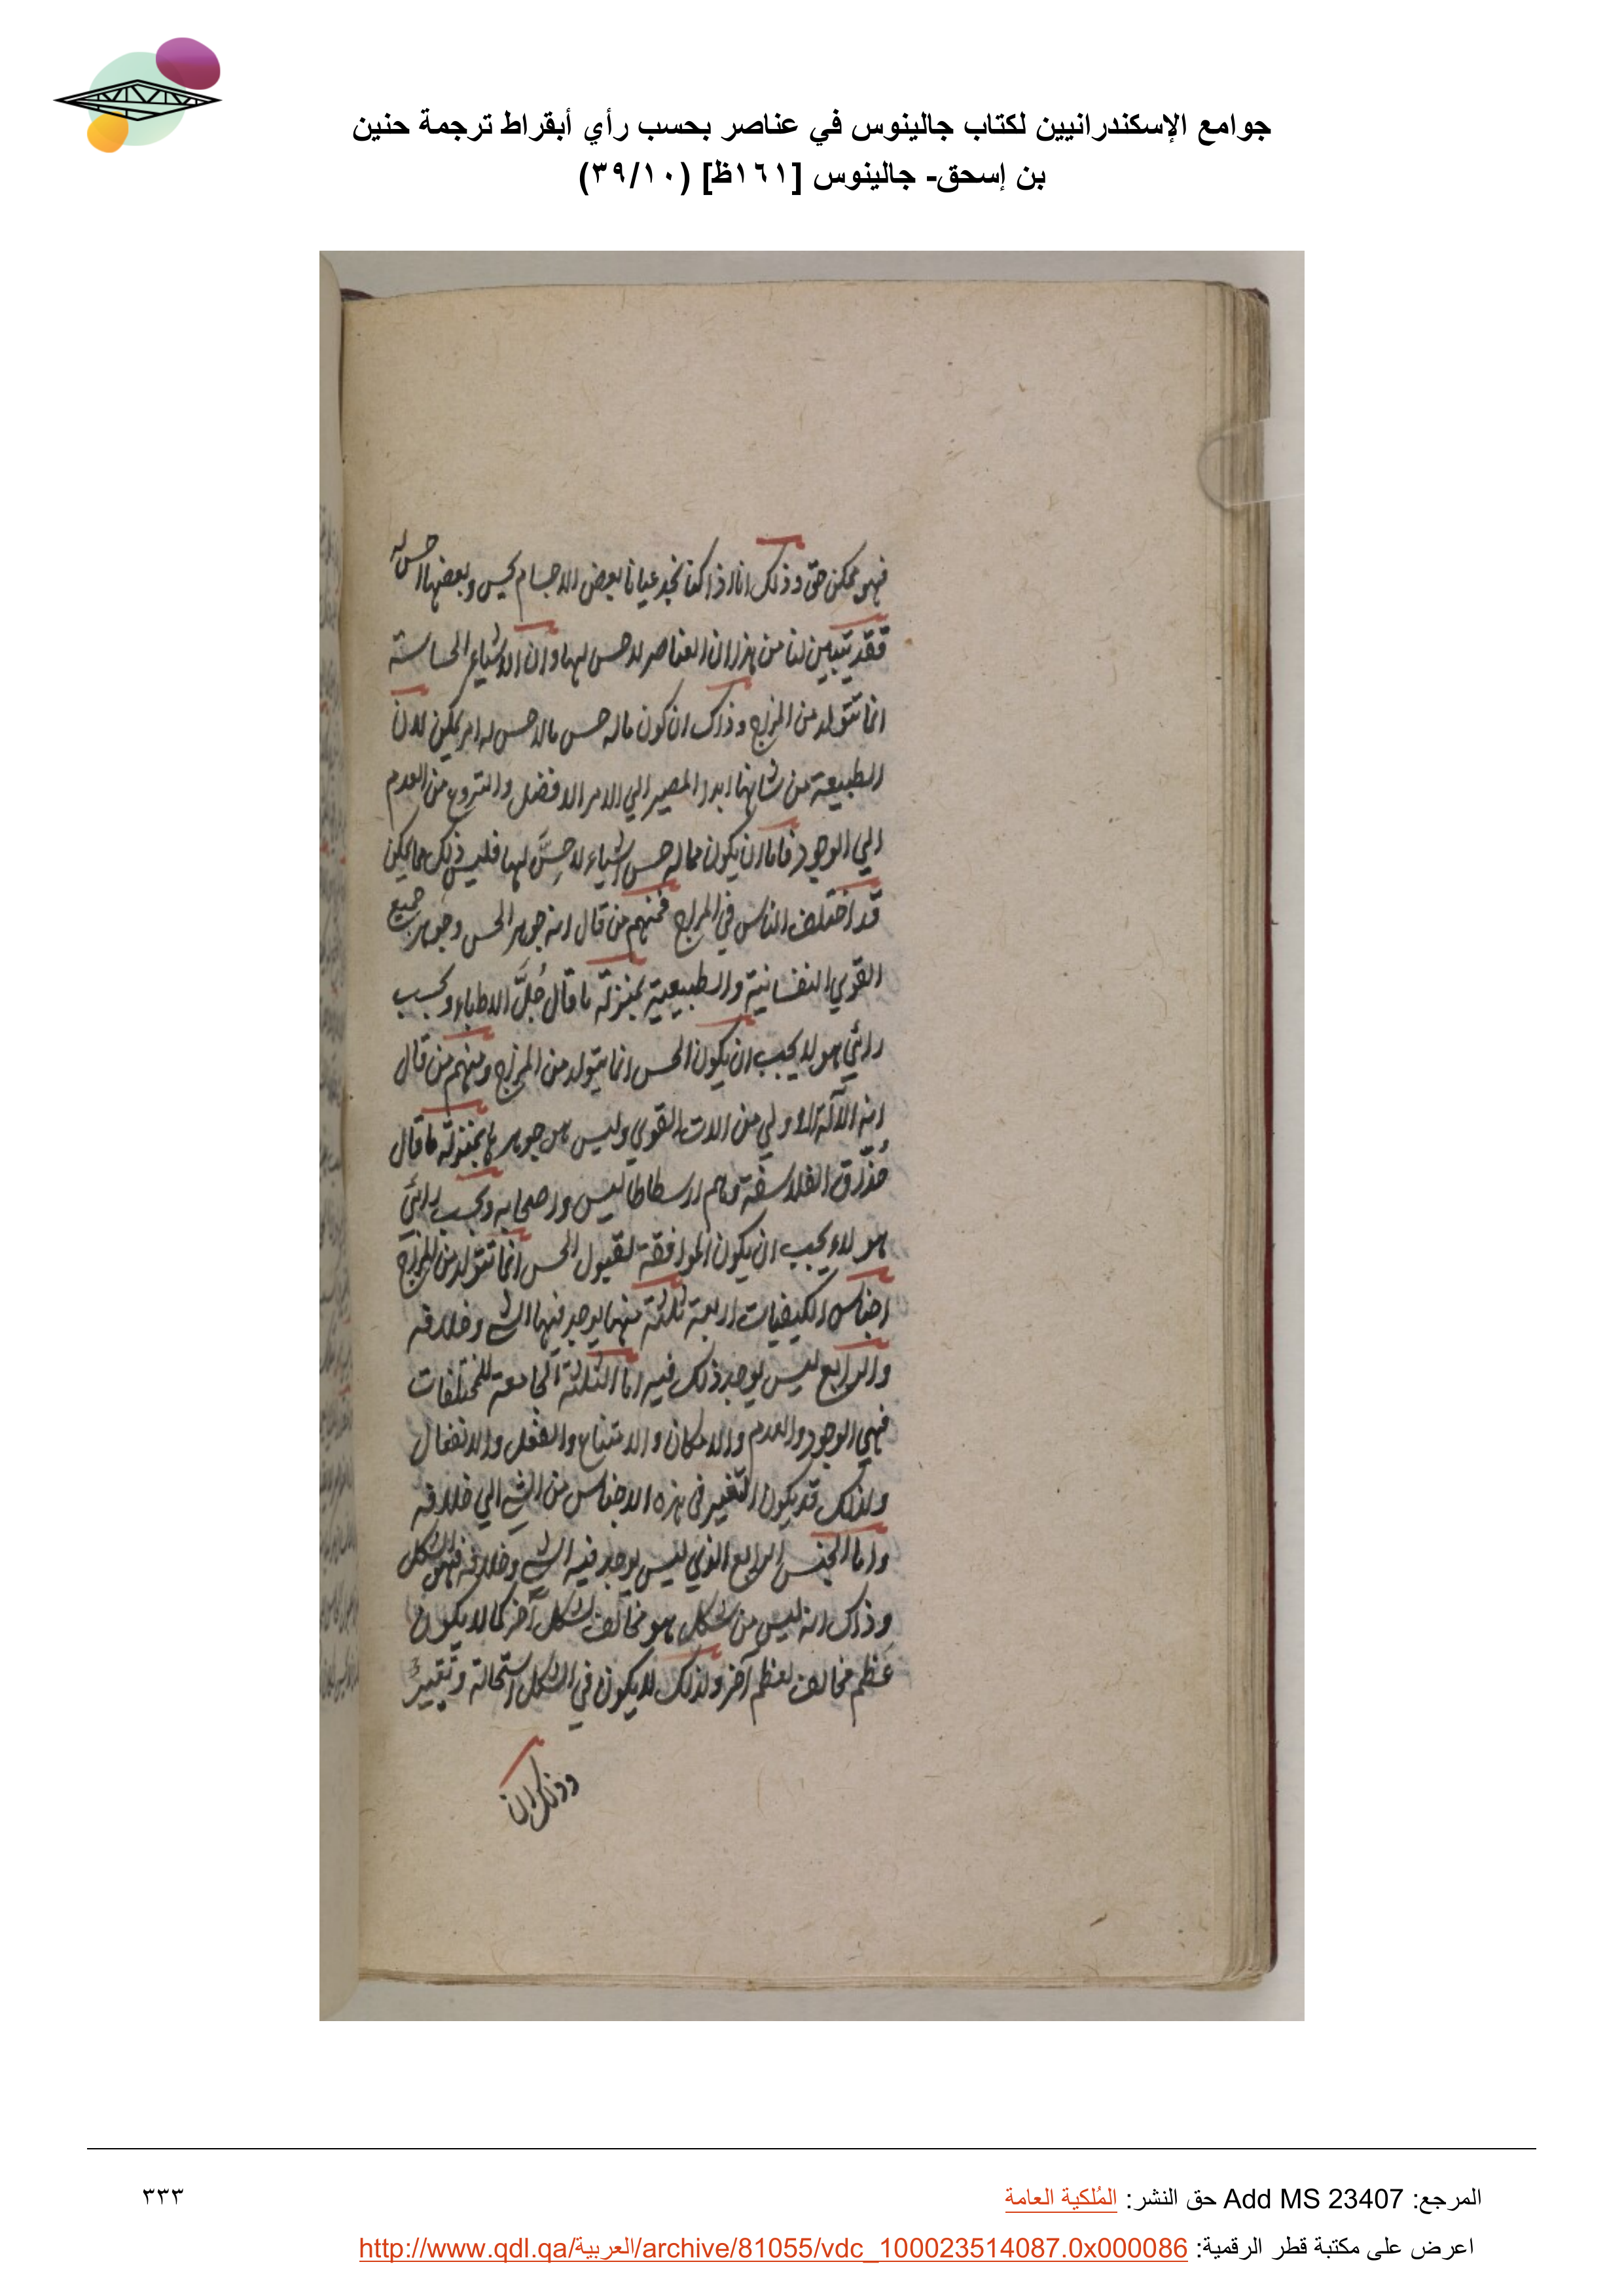 جوامع الإسكندرانيين لكتاب جالينوس في عناصر بحسب رأي أبقراط ترجمة حنين
بن إسحق- جالينوس [١٦١ظ] (٣٩/١٠)
فهو ممكن حق وذلك انا اذا كنا نجد عيانا بعض الاجسام يحس وبعضها لا حس له
فقد تبين لنا من هذا ان العناصر لا حس لها وان الاشياء الحساسة
انما تتولد من المزاج وذلك ان كون ماله حس مالا حس له امر يمكن لان
الطبيعة من شانها ابدا المصير الي الامر الافضل والتروع من العدم
الي الوجود فاما ان يكون مما له حس اشياء لا حِسَّ لها فليس ذلك مما يمكن
قد اختلف الناس في المزاج فمنهم من قال انه جوهر الحس وجوهر جميع
القوي النفسانية والطبيعية بمنزلة ما قال جُلَّ الاطباء وبحسب
رائي هولا يجب ان يكون الحس انما يتولد من المزاج ومنهم من قال
انه الآلة الاولي من الات القوي وليس هو جوهرها بمنزلة ما قال
حُذّاق الفلاسفة وهم ارسطاطاليس واصحابه وبحسب رائي
هولاء يجب ان يكون الموافقة لقبول الحس انما تتولد من المزاج
اجناس الكيفيات اربعة ثلثة منها يوجد فيها الشي وخلافه
والرابع ليس يوجد ذلك فيه اما الثلثة الجامعة للمختلفات
فهي الوجود والعدم والامكان والامتناع والفعل والانفعال
ولذلك قد يكون التغير في هذه الاجناس من الشي الي خلافه
واما الجنس الرابع الذي ليس يوجد فيه الشي وخلافه فهو الشكل
وذلك انه ليس من شكل هو مخالف لشكل آخر كما لا يكون
عظم مخالف لعظم آخر ولذلك لا يكون في الشكل استحالة وتغيير
وذلك ان
المرجع: Add MS 23407 حق النشر: المُلكية العامة
٣٣٣
اعرض على مكتبة قطر الرقمية: http://www.qdl.qa/العربية/archive/81055/vdc_100023514087.0x000086